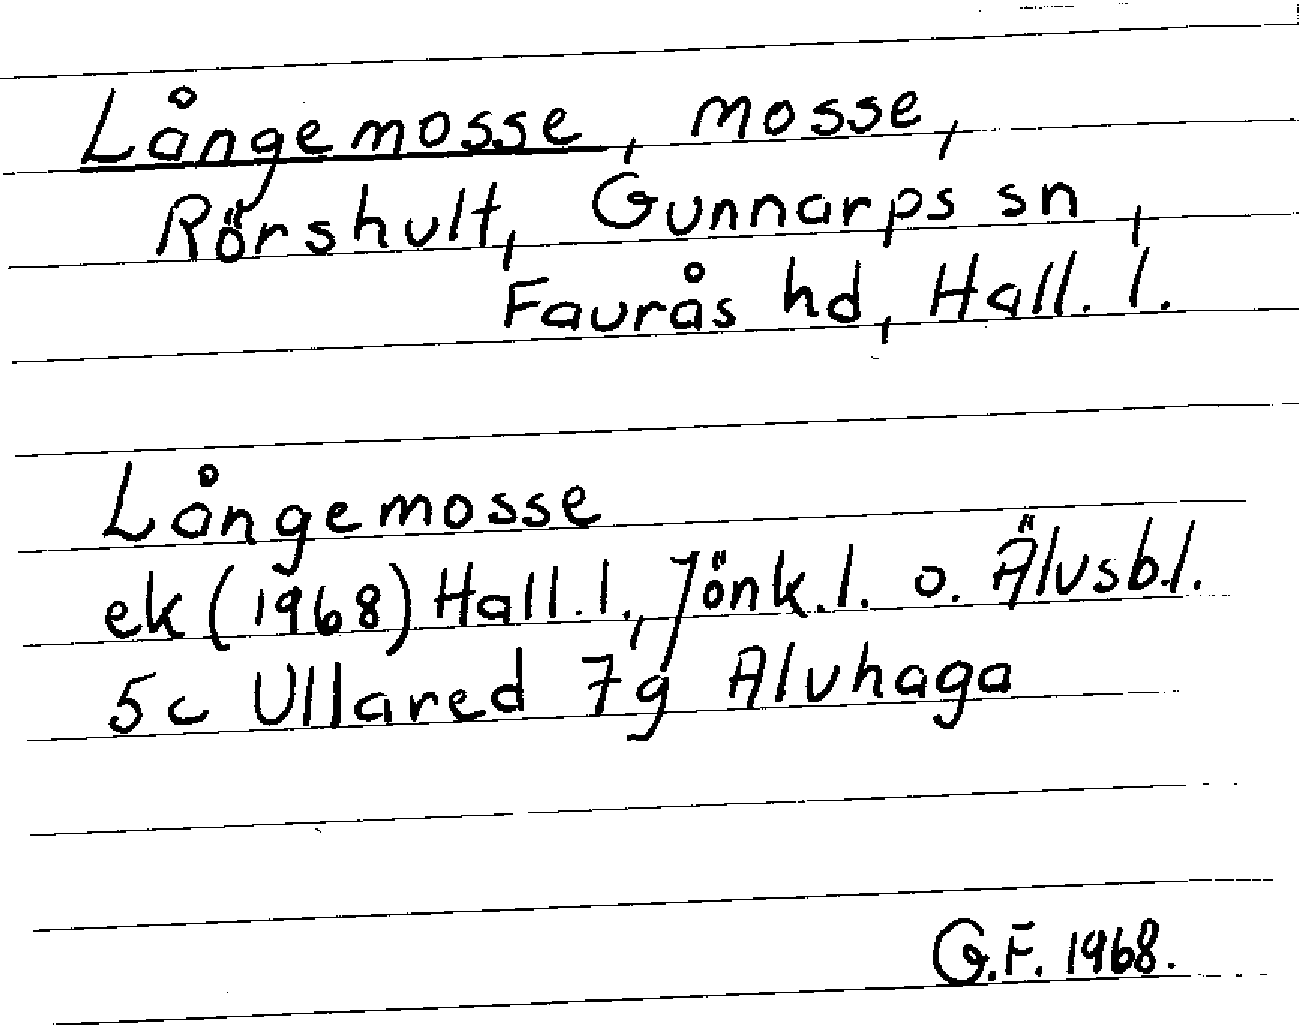 Långemosse, mosse,
Rörshult, Gunnarps sn,
Faurås hd, Hall. l.
Långemosse
ek (1968) Hall. l., Jönk. l. o. Älvsb.l.
5c Ullared 7g Alvhaga
G.F. 1968.